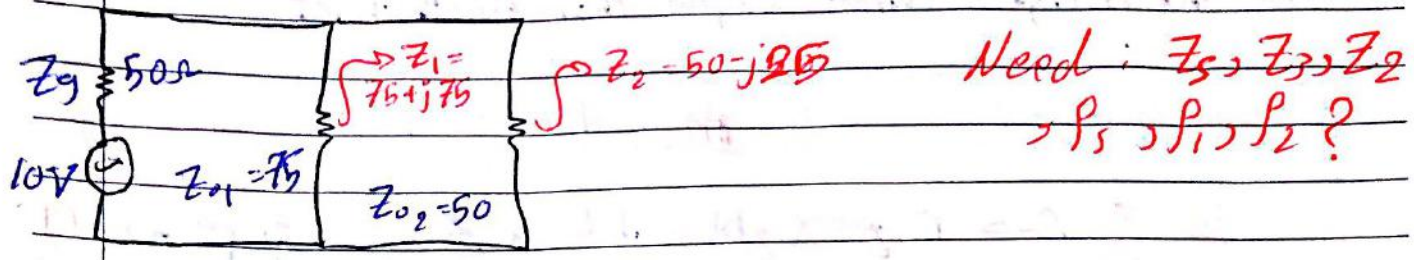 Zg 50Ω
10V
Z₀₁ = 75
Z₁ =
75+j75
Z₀₂ = 50
Z₂ = 50-j
Need : Zs, Z3, Z2
, ρs, ρ1, ρ2 ?